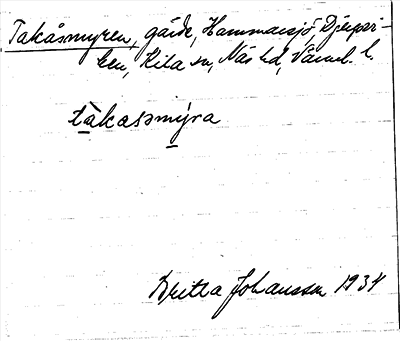 Takåsmyren, gärde, Hammarsjö, Djupvi-
ken, Kila sn, Näs hd, Värml. l.
takasmýra
Britta Johansson 1934